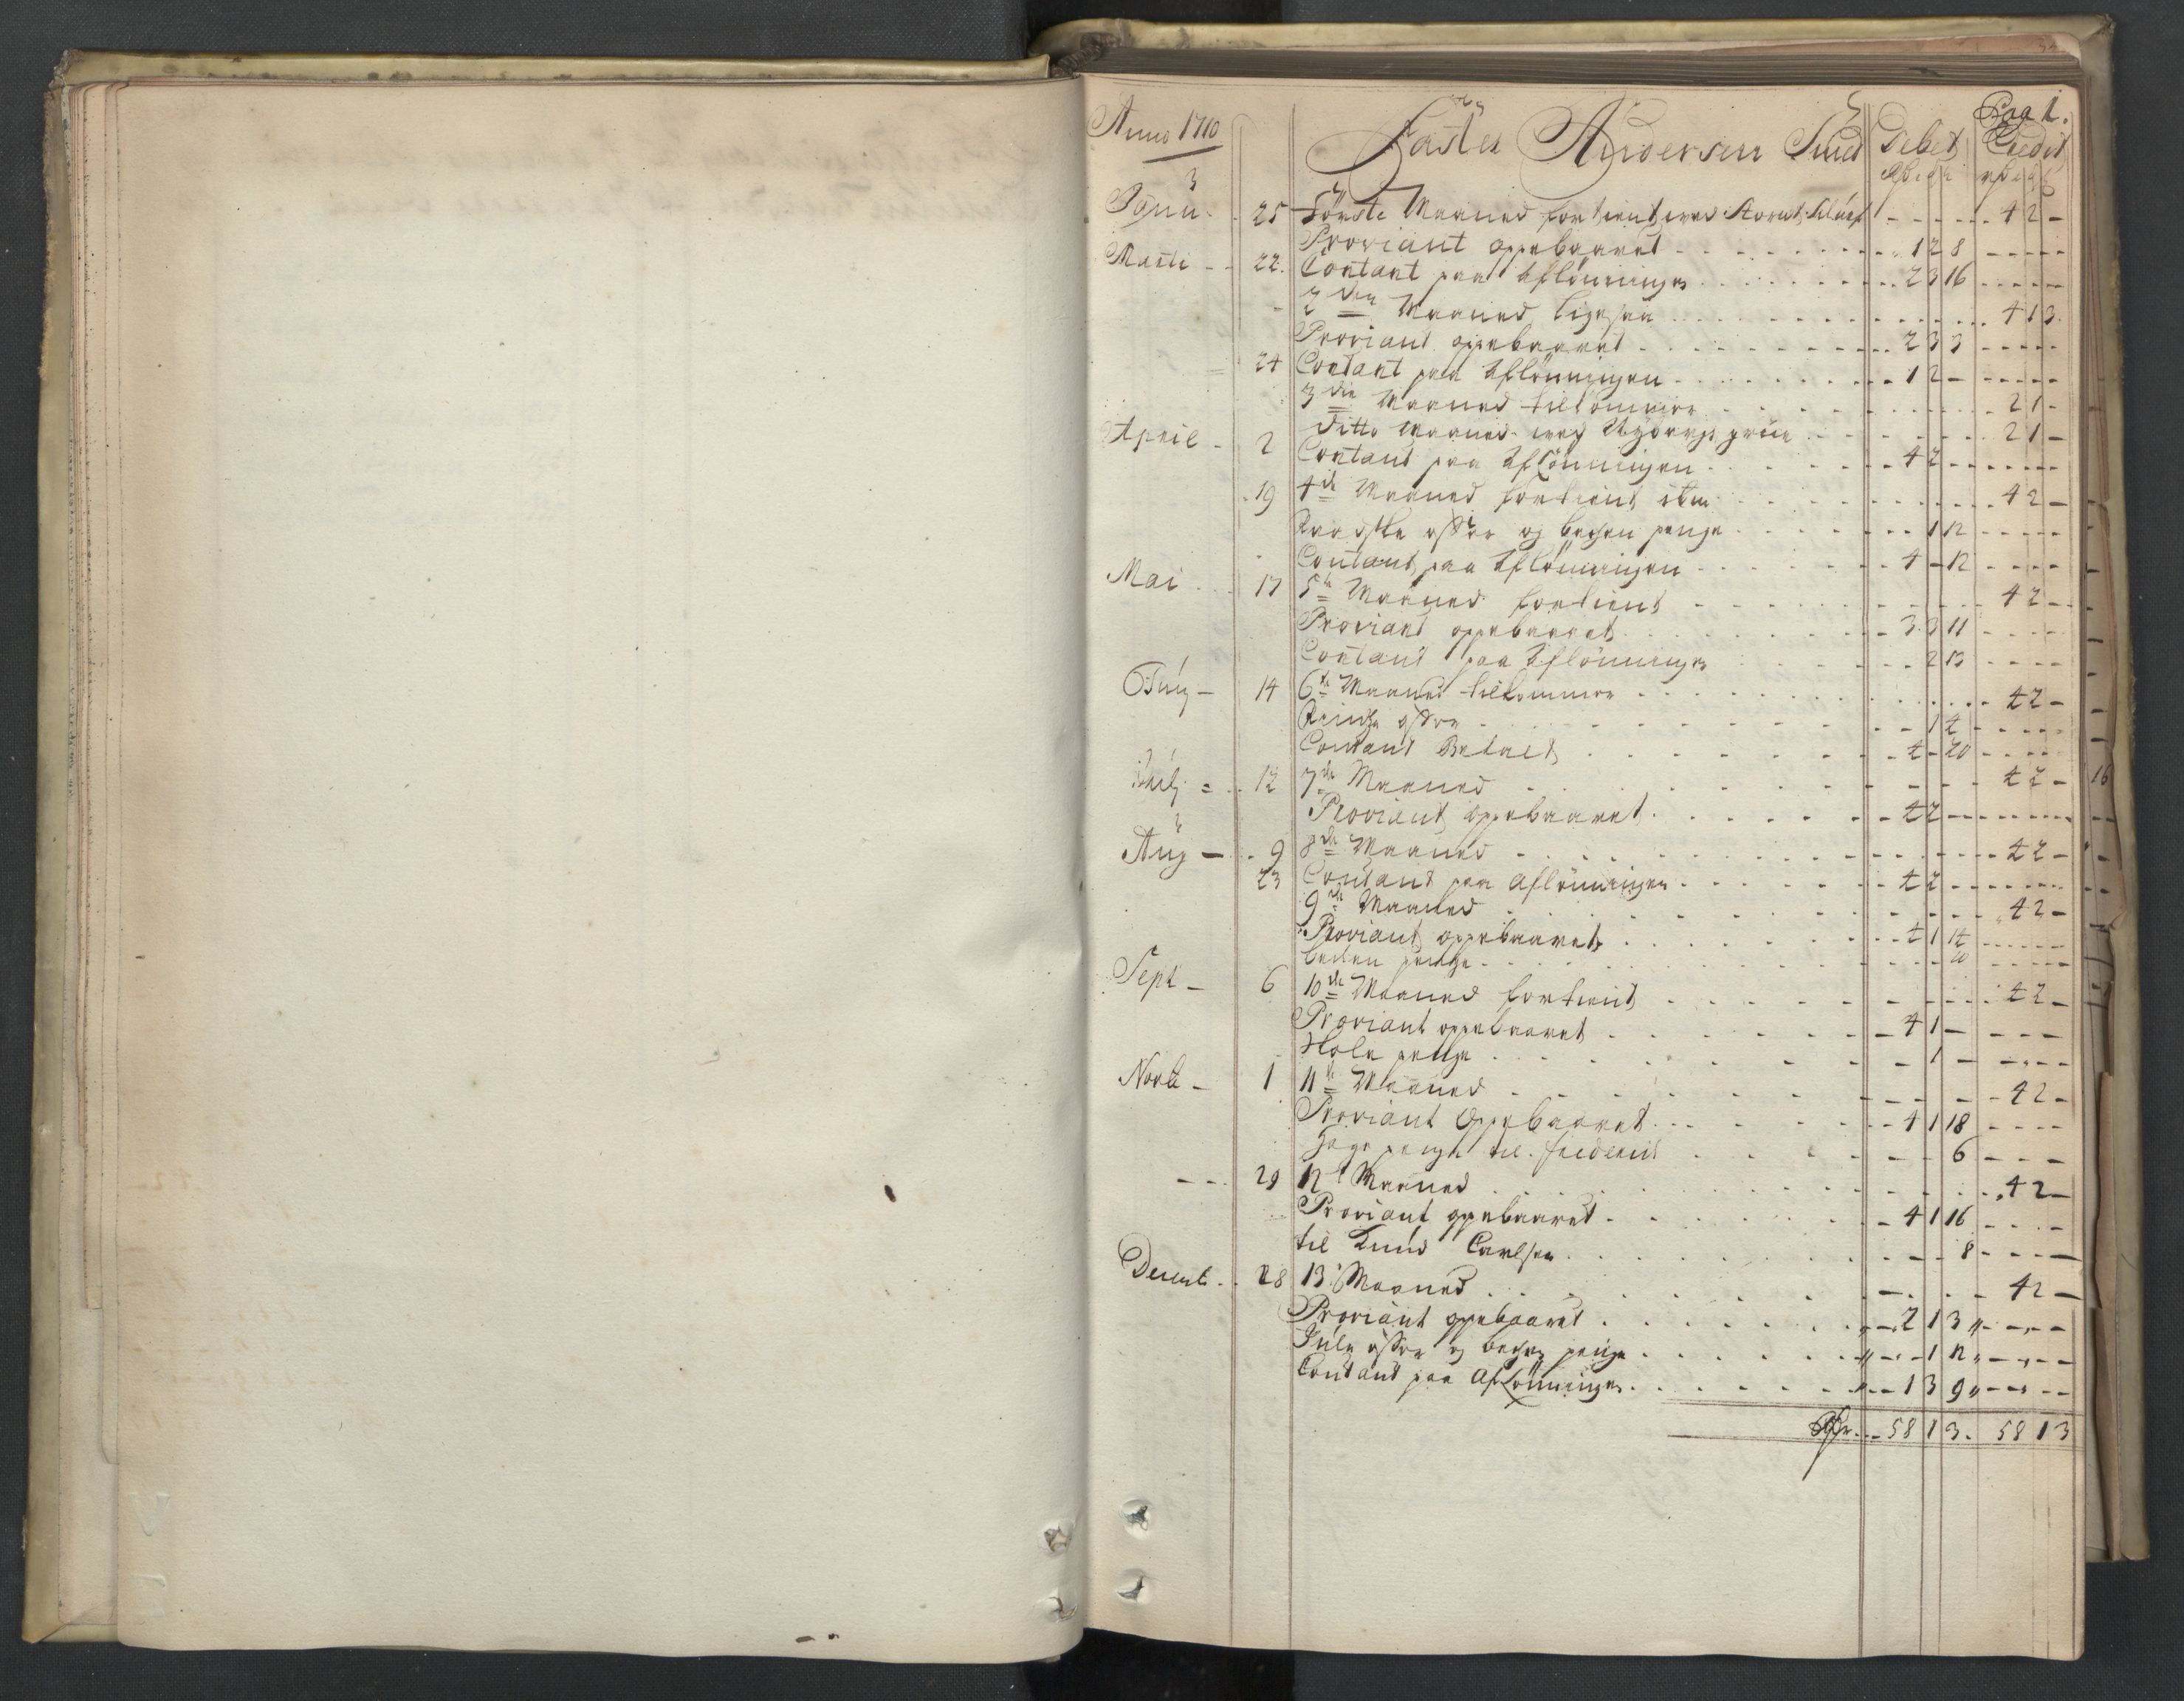 Pag 1.
Anno 1710 Andersen Smed Debet Credit
Janu. 25 Förste Maaned fortient med - - - - - 4 2 -
Proviant oppebaaret - - - 1 2 8 - - - -
Marti - - 22. Contant paa Aflönningen . . . 2 3 16 - - - -
2 den Maaned ligesaa . . . 4 1 3.
Proviant oppebaaret - - - 2 3 3 - - - -
24 Contant paa Aflönningen - - - 1 2 - - - - -
3 die Maaned tilkommer - - - 2 1 -
April - 2 Ditto Maaned - - - 2 1 -
Contant paa Aflönningen - - - 4 2 - - - - -
19 4 de Maaned fortient - - - 4 2 -
og penge - - - 1 12 - - - -
Contant paa Aflönningen - - - 4 - 12 - - - -
Mai - 17 5 te Maaned fortient - - - 4 2 -
Proviant oppebaaret - - - 3 3 11 - - - -
Contant paa Aflönningen - - - 2 13 - - - -
Juny - 14 6 te Maaned tilkommer - - - 4 2 -
- - - 1 4 - - - -
Contant Betalt - - - 4 - 20 - - - -
July = 12 7 de Maaned - - - 4 2 - 16
Proviant oppebaaret - - - 4 2 - - - - -
Aug - 9 8 de Maaned - - - 4 2 -
23 Contant paa Aflönningen - - - 4 2 - - - - -
9 de Maaned - - - 4 2 -
Proviant oppebaaret - - - 4 1 14 - - - -
penge - - - 20 - - - -
Sept - 6 10 de Maaned fortient - - - 4 2 -
Proviant oppebaaret - - - 4 1 - - - -
Skole penge - - - 1 - - - -
Novb - 1 11 te Maaned - - - 4 2 -
Proviant Oppebaaret - - - 4 1 18 - - - -
penge til - - - 6 - - -
- - - 29 12 t Maaned - - - 4 2 -
Proviant oppebaaret - - - 4 1 16 - - - -
til Knud Carlsen - - - 8 - - - -
Decemb - 28 13 Maaned - - - 4 2 -
Proviant oppebaaret - - - 2 1 3 - - - -
Jule offer og penge - - - 1 12 - - - -
Contant paa Aflönningen - - - 1 3 9 - - - -
58 1 3. 58 1 3